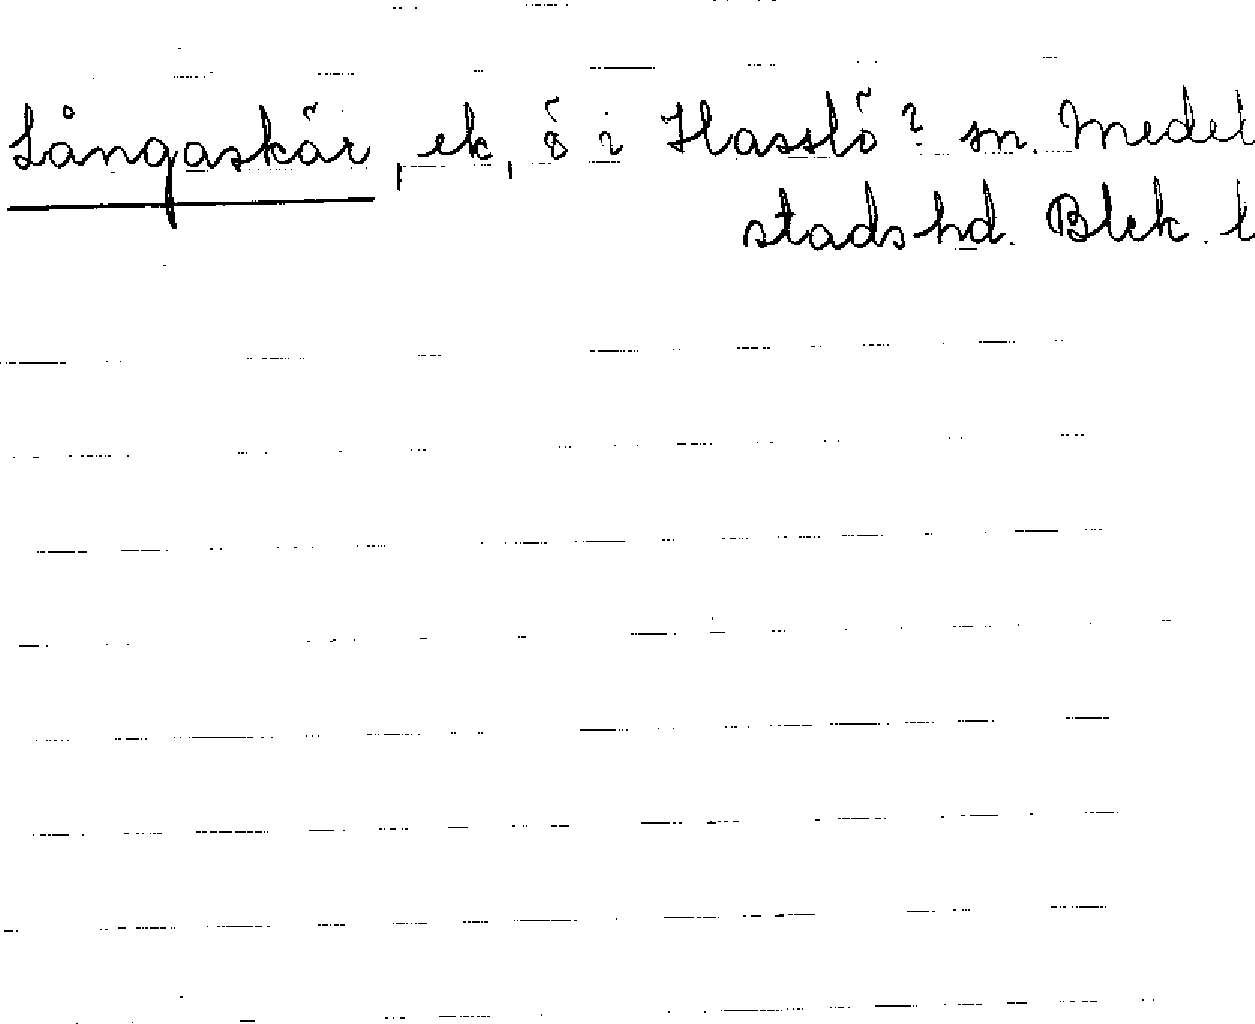 Långaskär, ek, ö i Hasslö? sn. Medel
stadshd. Blek. l